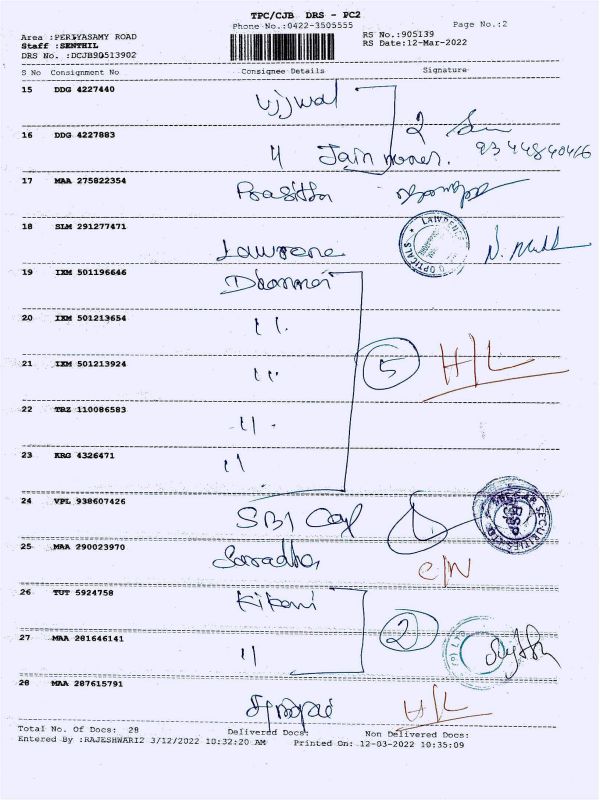 TPC/CJB DRS - PC2
Phone No.:0422-3505555 Page No.:2
Area :PERIYASAMY ROAD RS No.:905139
Staff :SENTHIL RS Date:12-Mar-2022
DRS No. :DCJB90513902
S No Consignment No Consignee Details Signature
15 DDG 4227440 Ujjwal
2
16 DDG 4227883 〃 Jain
9344840416
17 MAA 275822354 Prasitha
18 SLM 291277471
LAWRENCE OPTICALS
19 IXM 501196646
20 IXM 501213654 〃
21 IXM 501213924 〃 5 H/L
22 TRZ 110086583 〃
23 KRG 4326471 〃
24 VPL 938607426 SBI Cap
SECURITIES
25 MAA 290023970 Saradha C/N
26 TUT 5924758 Kikani
2
27 MAA 281646141 〃
28 MAA 287615791 H/L
Total No. Of Docs: 28 Delivered Docs: Non Delivered Docs:
Entered By :RAJESHWARI2 3/12/2022 10:32:20 AM Printed On: 12-03-2022 10:35:09